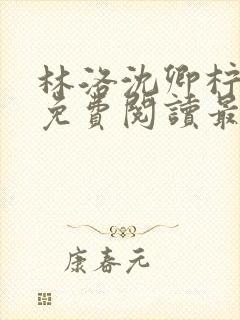 林洛沈卿柠
免費閱讀最
康春元